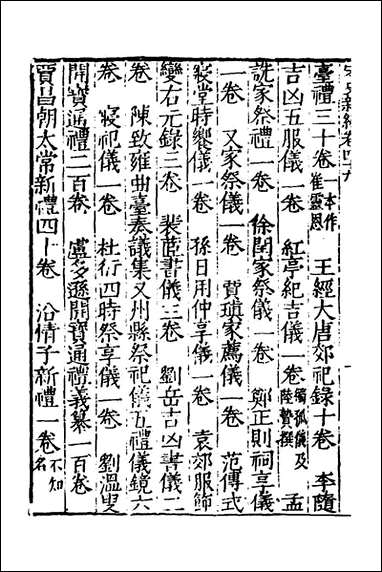 宋史新編卷四十九
臺禮三十卷一本作崔靈恩 王經大唐郊祀錄十卷 李隨
吉凶五服儀一卷 紅亭紀吉儀一卷獨孤儀及陸贄撰 孟
詵家祭禮一卷 徐閏家祭儀一卷 鄭正則祠享儀
一卷 又家祭儀一卷 賈頊家薦儀一卷 范傳式
寢堂時饗儀一卷 孫日用仲享儀一卷 袁郊服飾
變古元錄三卷 裴茝書儀三卷 劉岳吉凶書儀二
卷 陳致雍曲臺奏議集又州縣祭祀儀五禮儀鏡六
卷 寢祀儀一卷 杜衍四時祭享儀一卷 劉溫叟
開寶通禮二百卷 盧多遜開寶通禮義纂一百卷
賈昌朝太常新禮四十卷 沿情子新禮一卷不知名